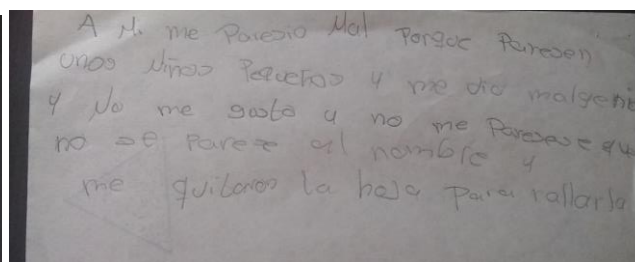 A Mi me Paresio Mal Porque Paresen
unos Niños Pequeños y me dio malgeni
y No me gosto y no me Paresese que
no se Parese al nombre y
me quitaron la hoja para rallarla